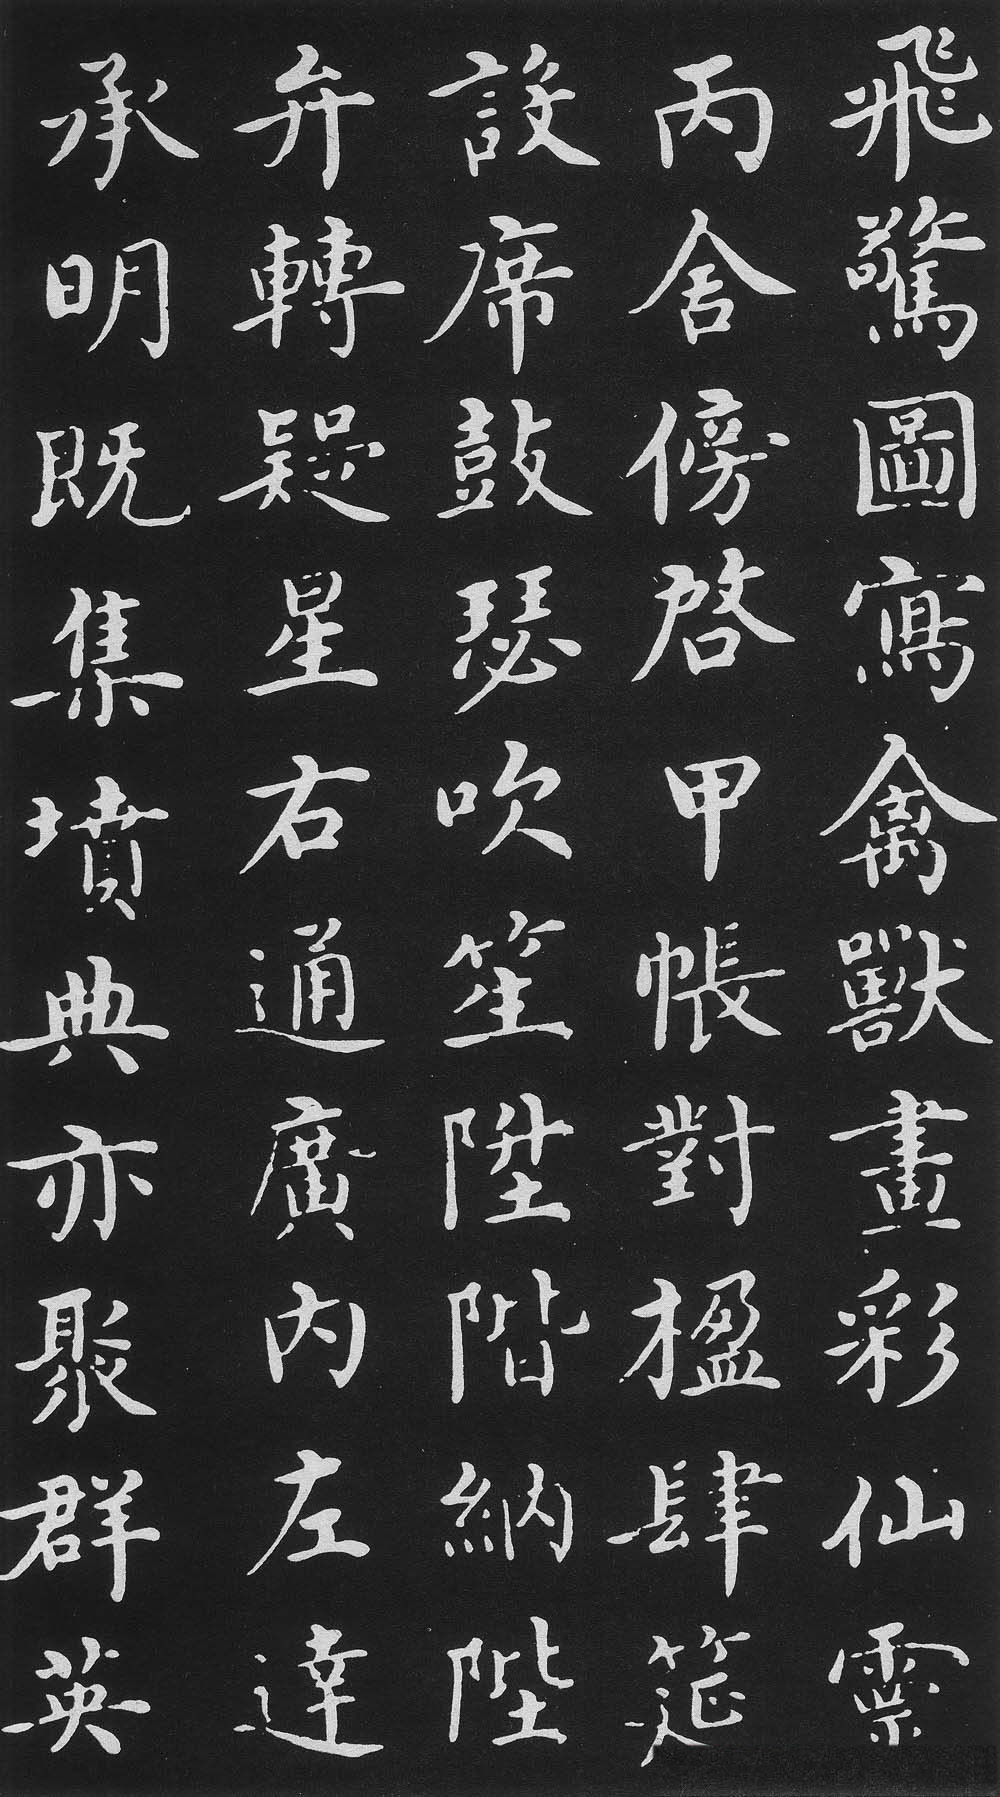 飛驚圖寫禽獸畫彩仙靈
丙舍傍啓甲帳對楹肆筵
設席鼓瑟吹笙陞階納陛
弁轉疑星右通廣內左達
承明既集墳典亦聚群英